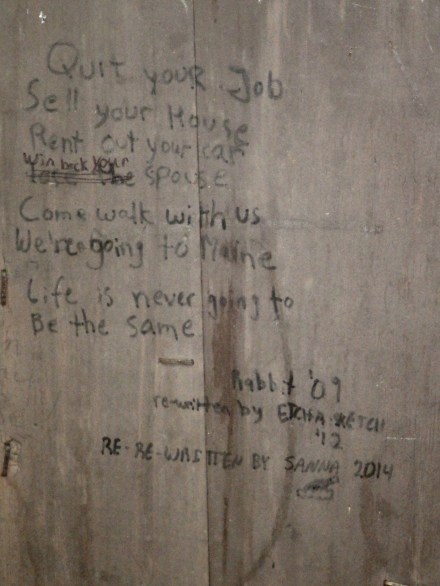 Quit your Job
Sell your House
Rent out your car
Win back your
lose the spouse
Come walk with us
We're going to Maine
Life is never going to
Be the same
Rabbit '09
re-written by ETCH A SKETCH
'12
RE-RE-WRITTEN BY SANNA 2014